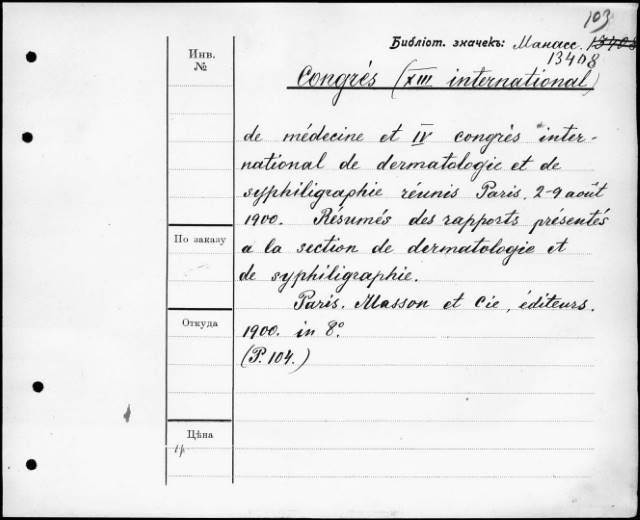 103
Библіот. значекъ: Манасс. 13408
13408
Инв.
№
Congrés (XIII international)
de médecine et IV congrès inter-
national de dermatologie et de
syphiligraphie réunis Paris. 2-9 août
1900. Résumés des rapports présentés
По заказу
a la section de dermatologie et
de syphiligraphie.
Paris. Masson et Cie, éditeurs.
Откуда
1900. in 8º
(P. 104.)
Цѣна